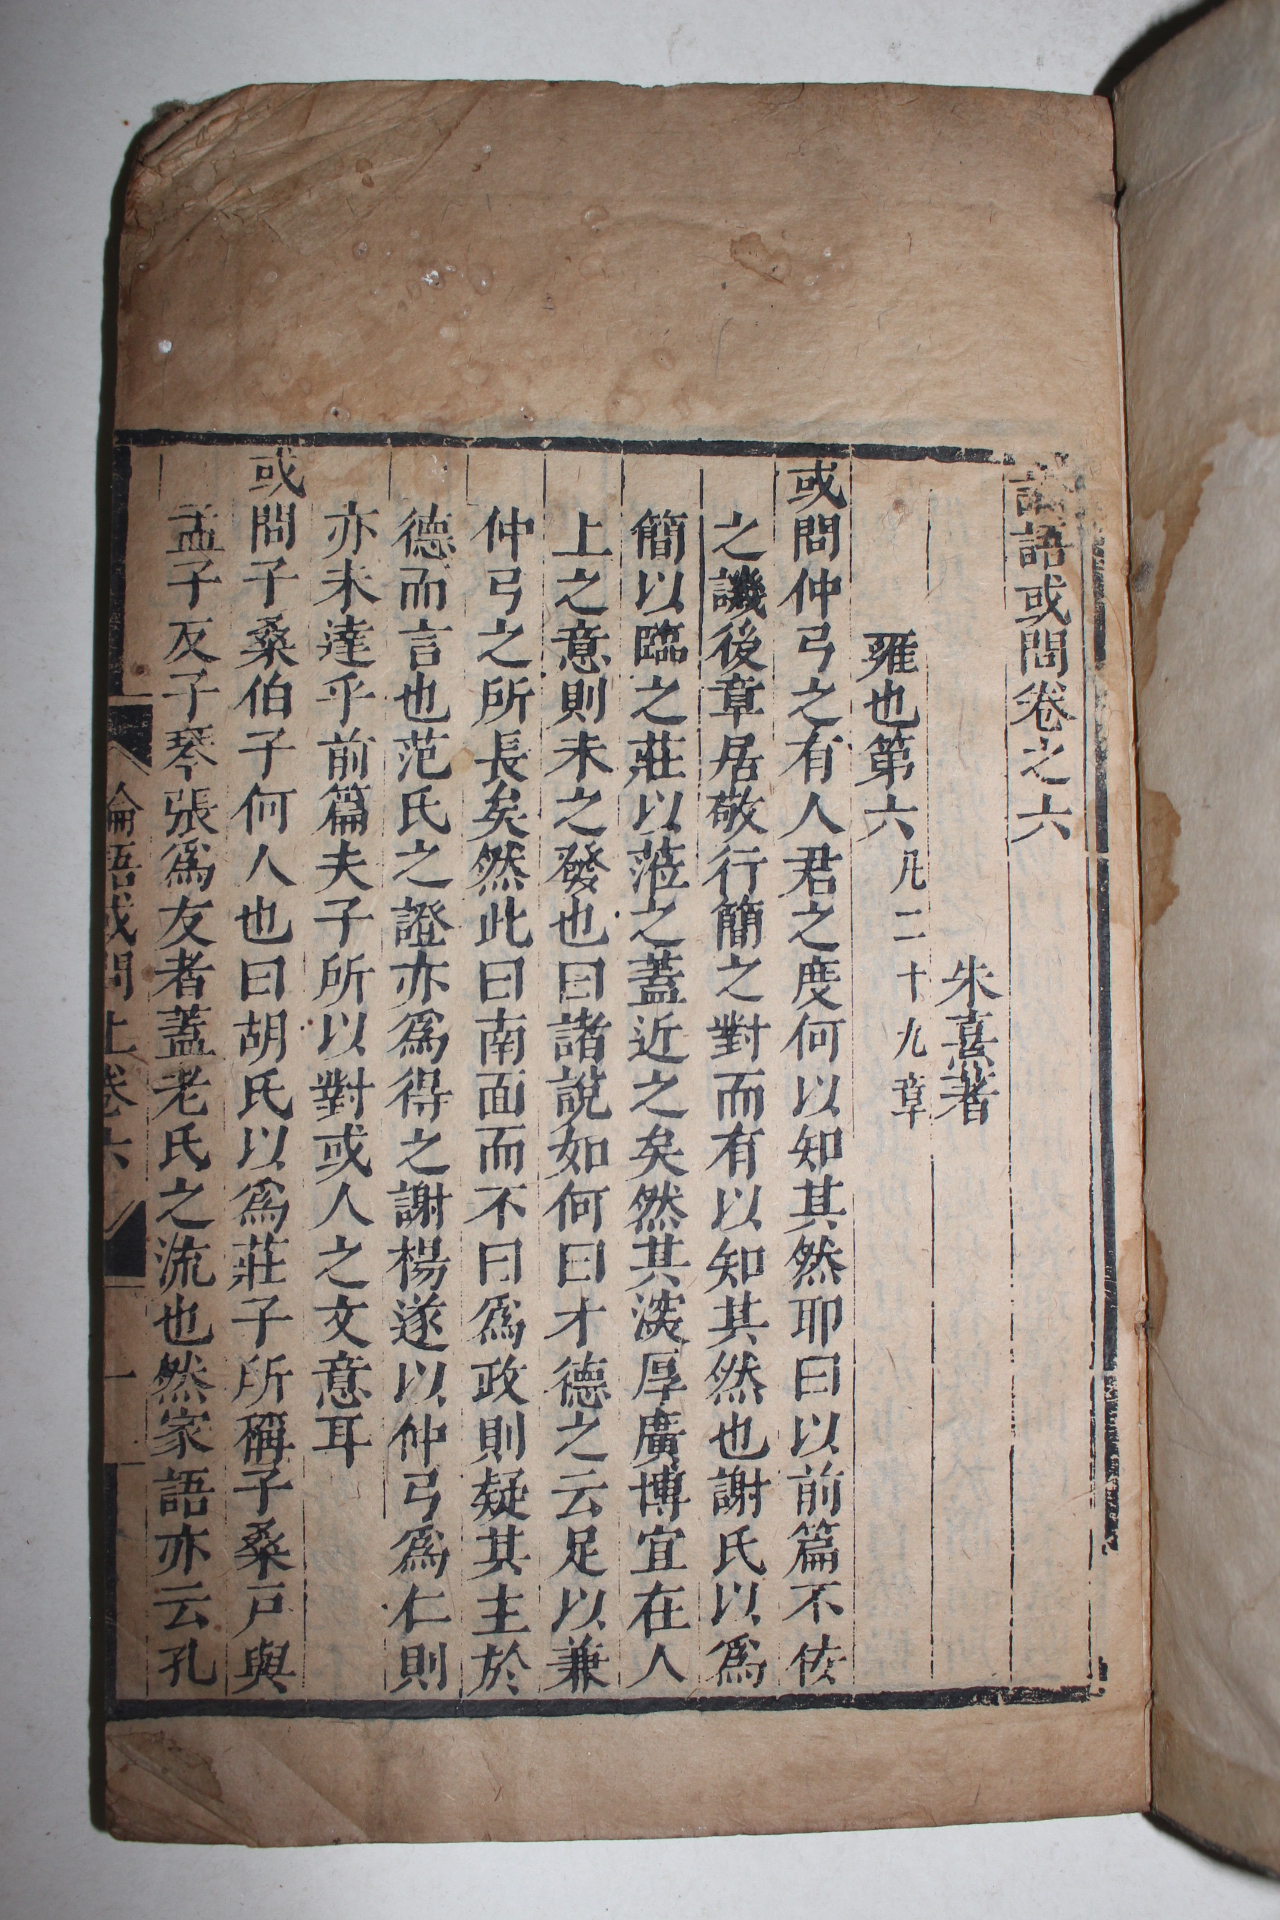 論語或問卷之六
朱熹著
雍也第六凡二十九章
或問仲弓之有人君之度何以知其然耶曰以前篇不佞
之譏後章居敬行簡之對而有以知其然也謝氏以爲
簡以臨之莊以蒞之蓋近之矣然其淡厚廣博宜在人
上之意則未之發也曰諸說如何曰才德之云足以兼
仲弓之所長矣然此曰南面而不曰爲政則疑其主於
德而言也范氏之證亦爲得之謝楊遂以仲弓爲仁則
亦未達乎前篇夫子所以對或人之文意耳
或問子桑伯子何人也曰胡氏以爲莊子所稱子桑戶與
孟子反子琴張爲友者蓋老氏之流也然家語亦云孔
論語或問 上卷六 一